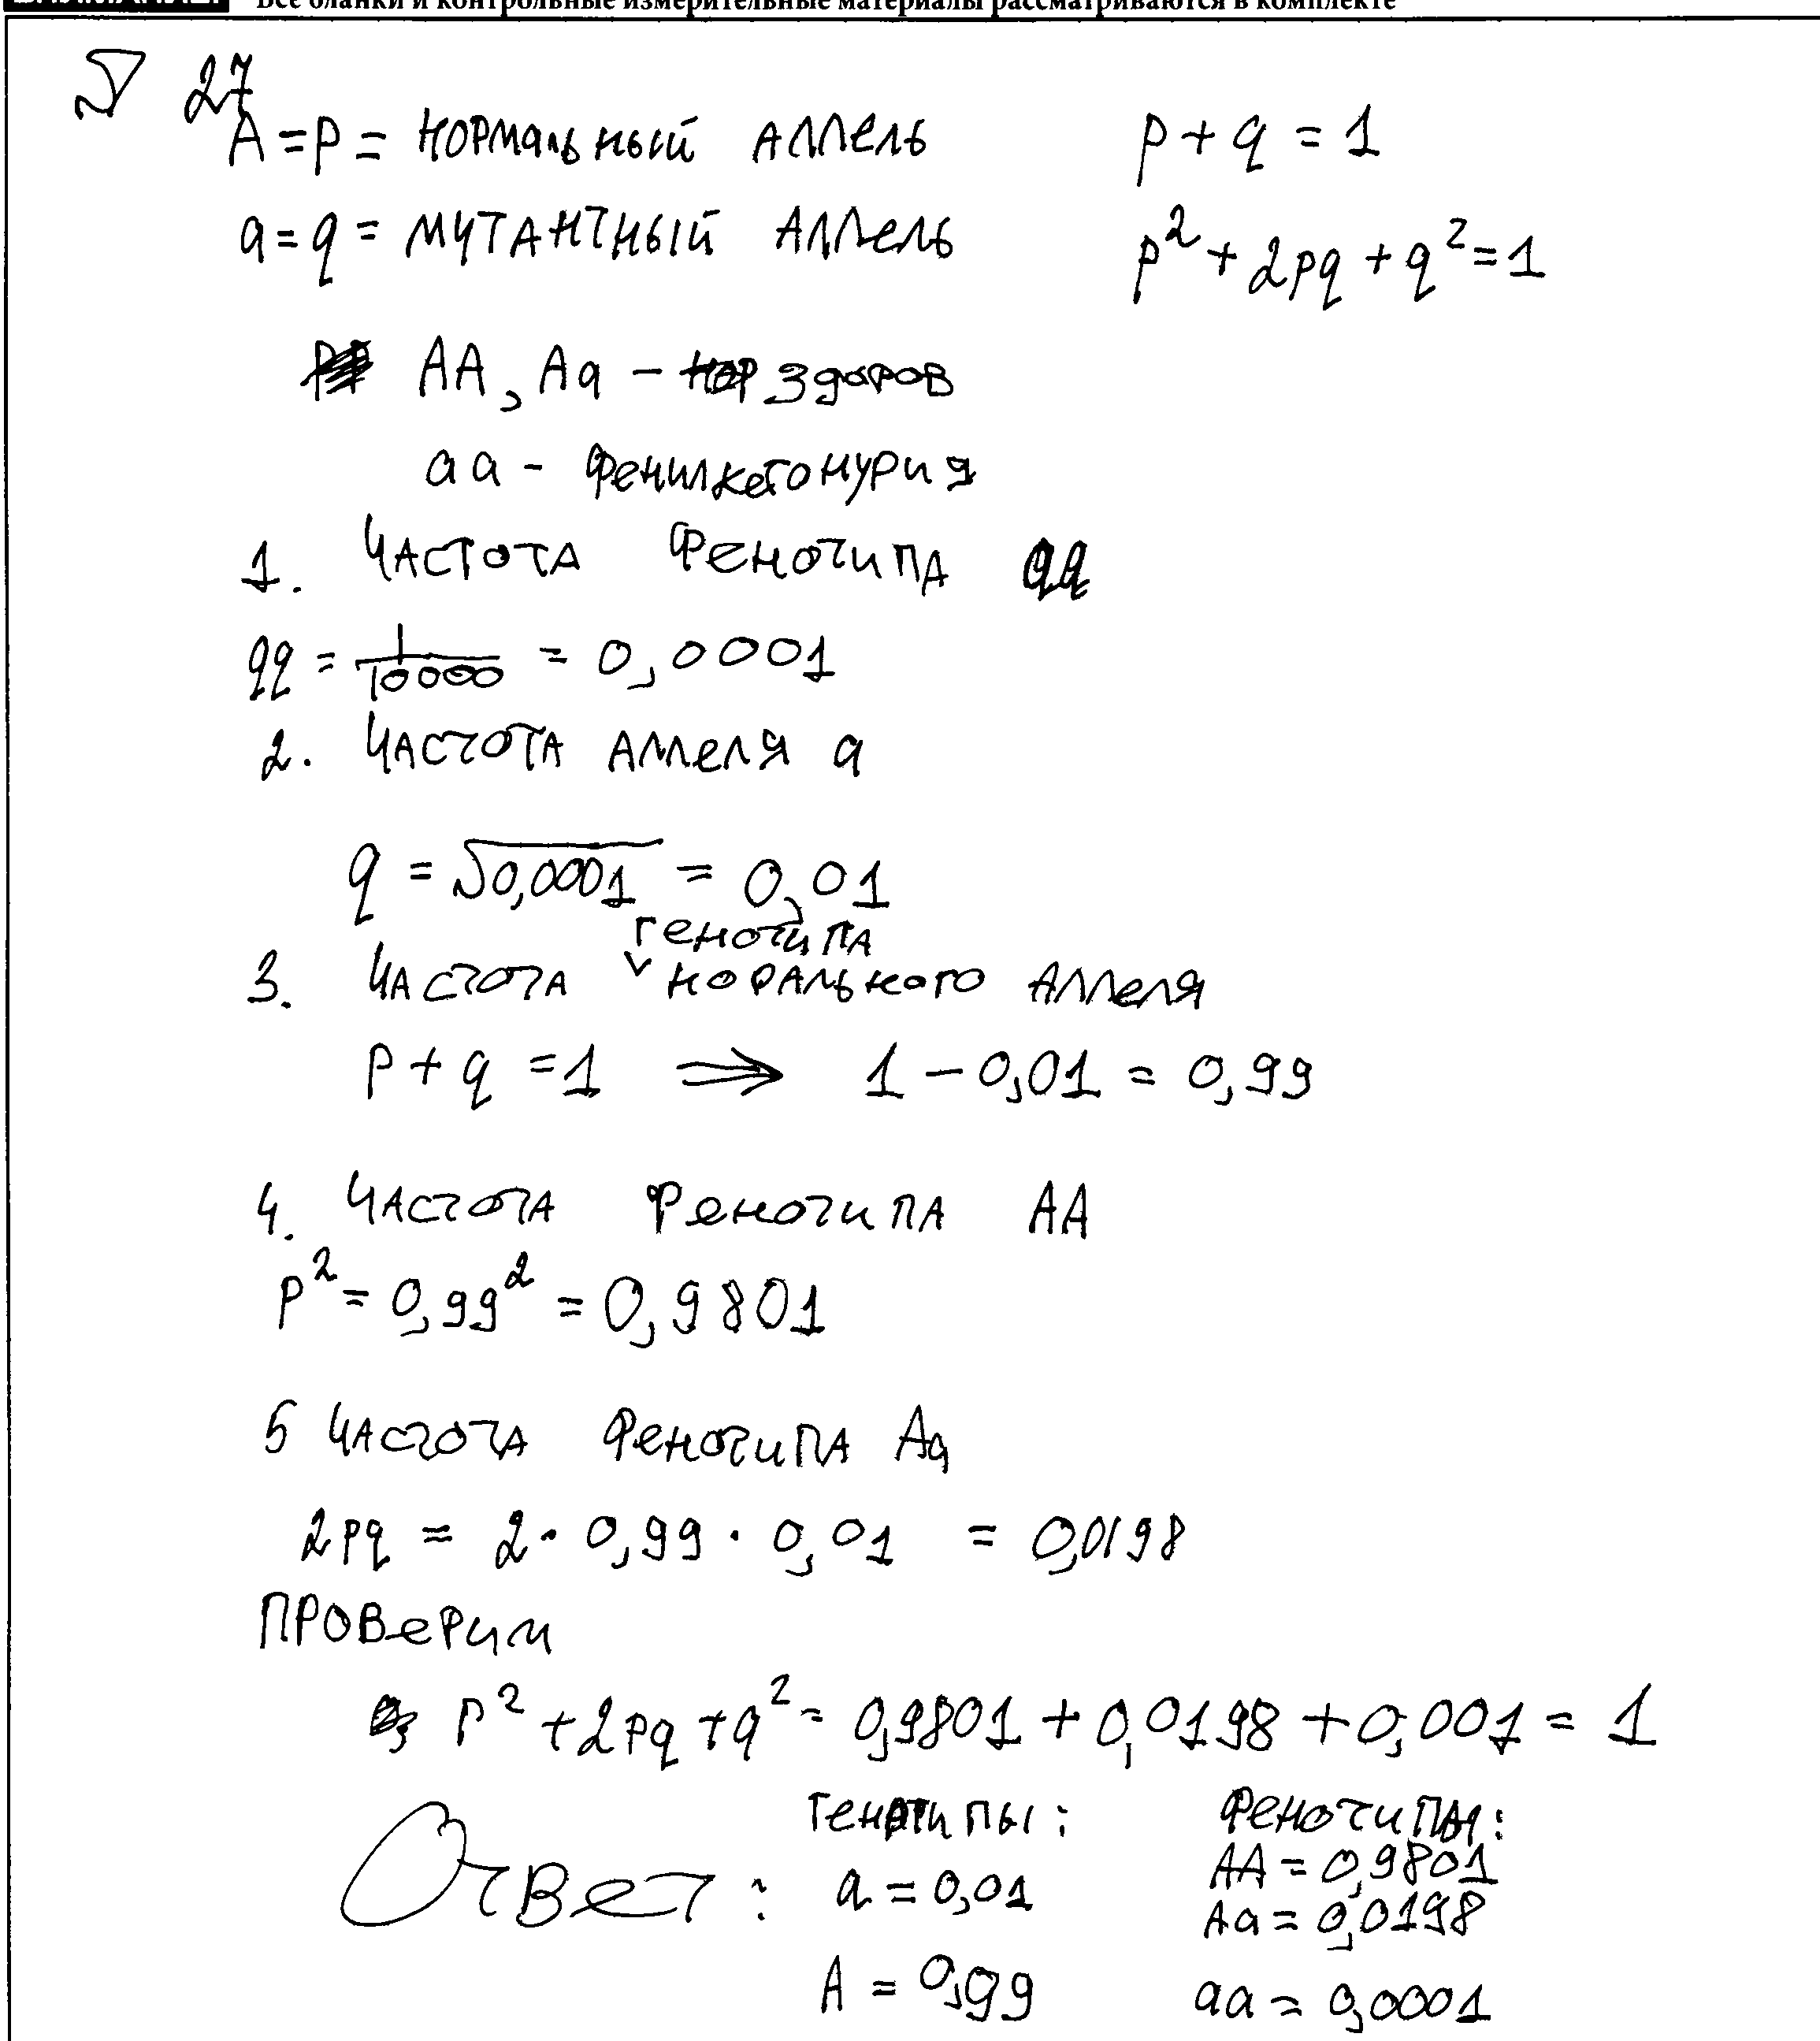 Все бланки и контрольные измерительные материалы рассматриваются в комплекте
27
A = p = нормальный аллель p + q = 1
a = q = мутантный аллель p² + 2pq + q² = 1
AA, Aa - нор здоров
aa - фенилкетонурия
1. Частота фенотипа qq
qq = 1/10000 = 0,0001
2. Частота аллеля a
q = √0,0001 = 0,01
генотипа
3. Частота ᵛ норального аллеля
p + q = 1 ⇒ 1 - 0,01 = 0,99
4. Частота фенотипа AA
p² = 0,99² = 0,9801
5 Частота фенотипа Aa
2pq = 2 · 0,99 · 0,01 = 0,0198
Проверим
p² + 2pq + q² = 0,9801 + 0,0198 + 0,001 = 1
Генотипы: Фенотипы:
AA = 0,9801
Ответ: a = 0,01
Aa = 0,0198
A = 0,99 aa = 0,0001